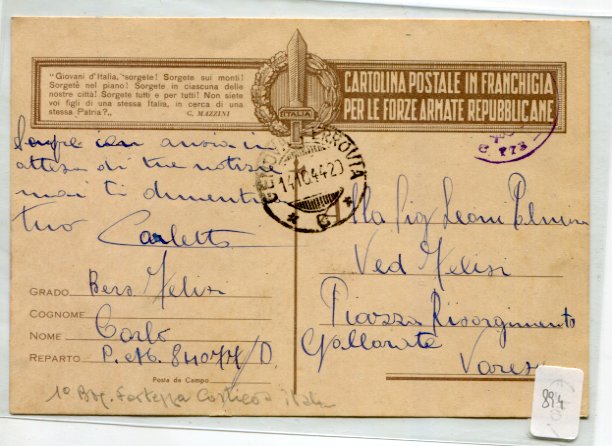 "Giovani d'Italia, sorgete! Sorgete sui monti!
Sorgete nel piano! Sorgete in ciascuna delle
nostre città! Sorgete tutti e per tutti! Non siete
voi figli di una stessa Italia, in cerca di una
stessa Patria?"
G. MAZZINI
ITALIA
CARTOLINA POSTALE IN FRANCHIGIA
PER LE FORZE ARMATE REPUBBLICANE
Sempre con ansia in
attesa di tue notizie
mai ti dimentic
tuo
Carletto
GENOVA FERROVIA
14.10.44.20
* C *
Alla Sig Leoni Palmira
Ved Melisi
Piazza Risorgimento
Gallarate
Varese
GRADO Bers Melisi
COGNOME
NOME Carlo
REPARTO P.d.C. 84077/D.
Posta da Campo
1° Brg. Fortezza Costiera Italia
894